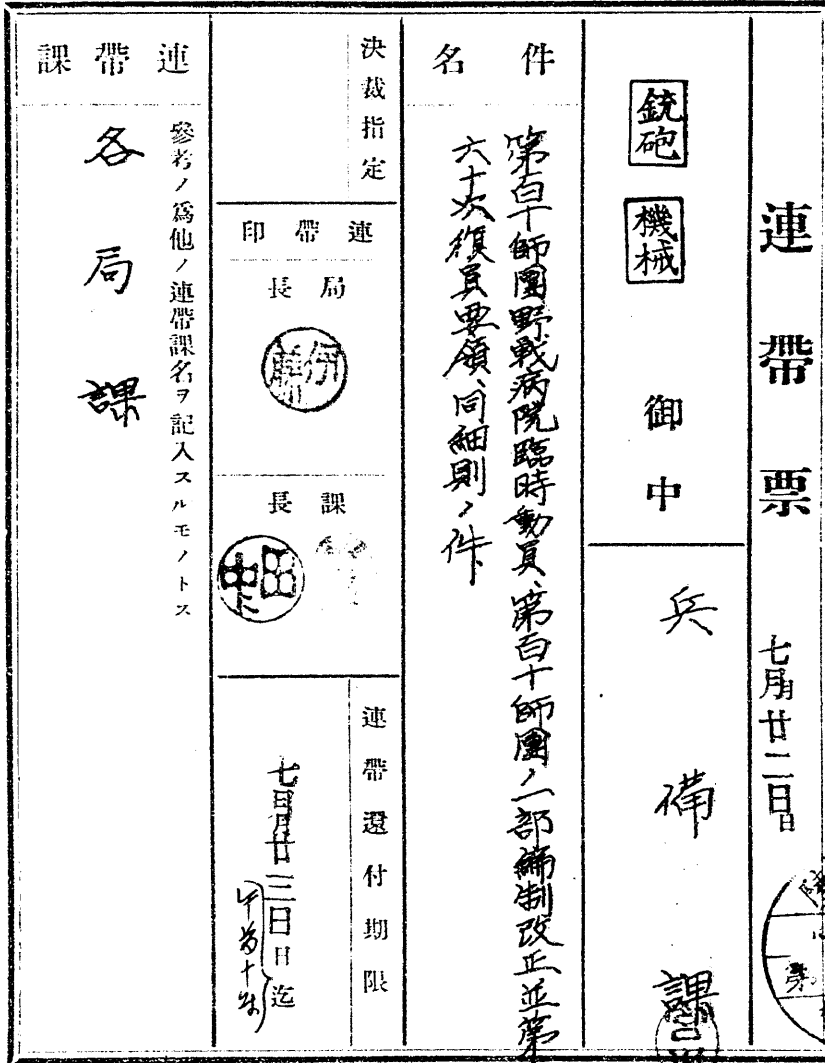 連帶票
七月廿二日
銃砲
機械
御中
兵備課
件名
第百十師團野戰病院臨時動員、第百十師團ノ一部編制改正並第
六十次復員要領、同細則ノ件
決裁指定
連帶印
局長
課長
田中
連帶還付期限
七月廿三日迄
午前十時
連帶課
參考ノ爲他ノ連帶課名ヲ記入スルモノトス
各局課